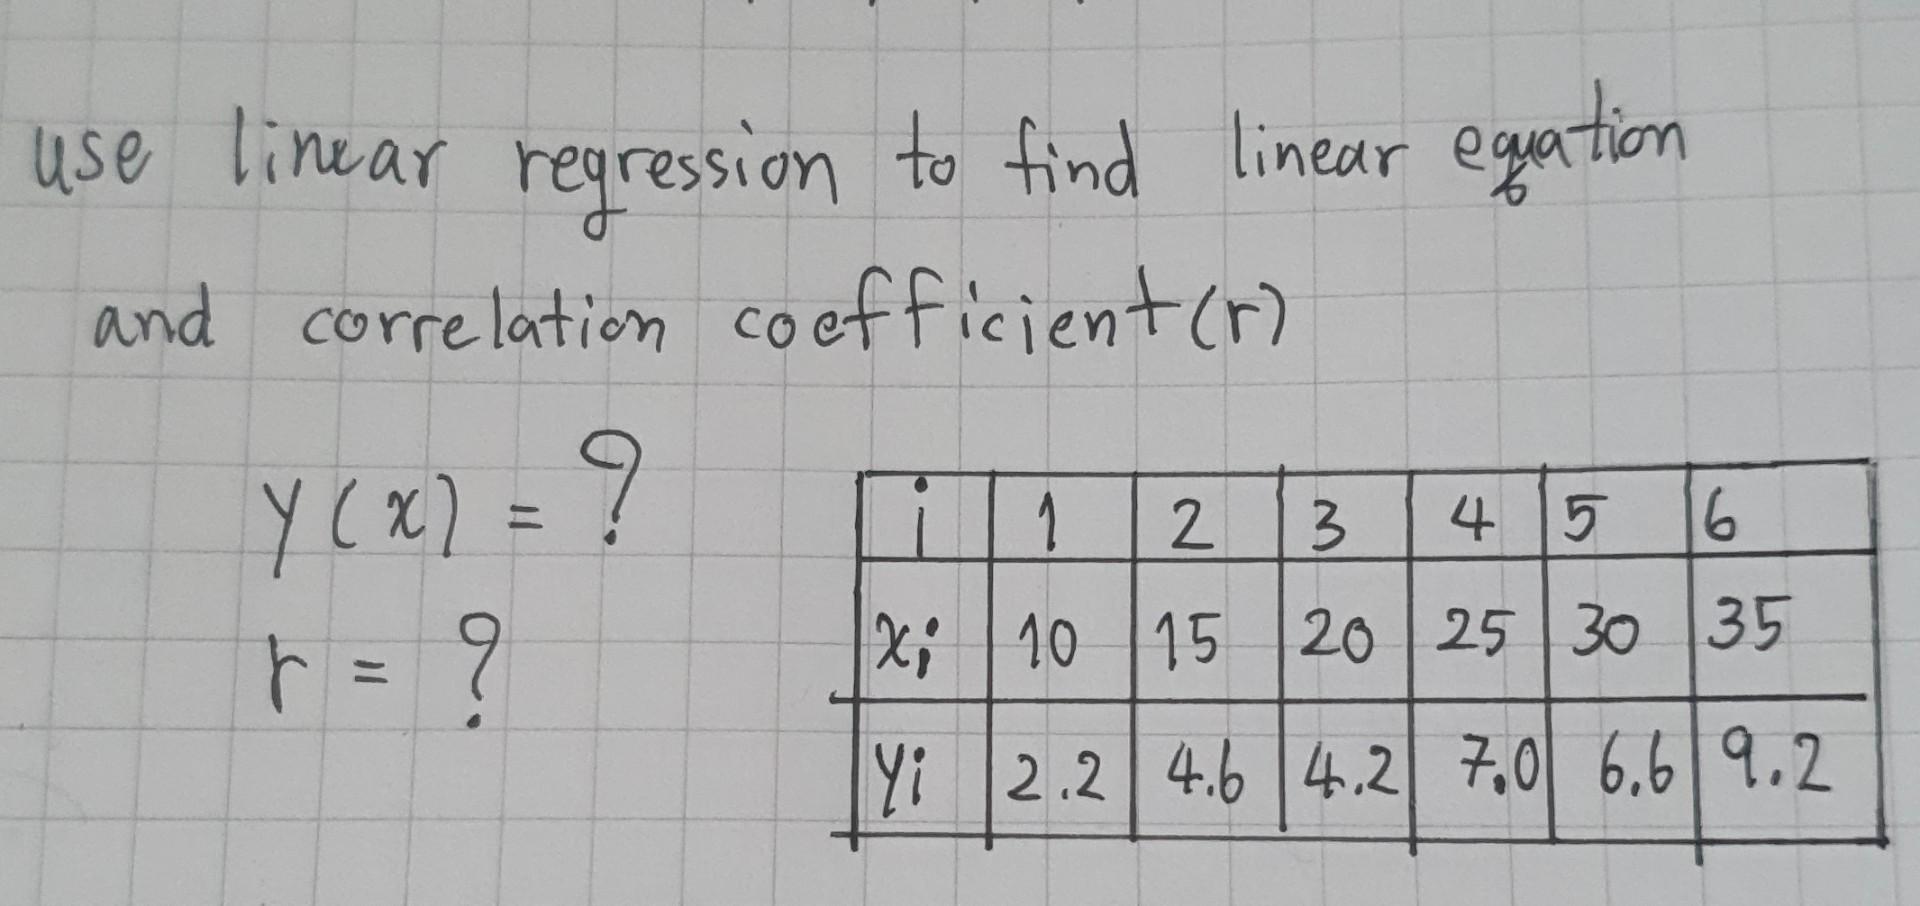 use linear regression to find linear equation
and correlation coefficient (r)
y(x) = ?
r = ?
i 1 2 3 4 5 6
xi 10 15 20 25 30 35
yi 2.2 4.6 4.2 7.0 6.6 9.2